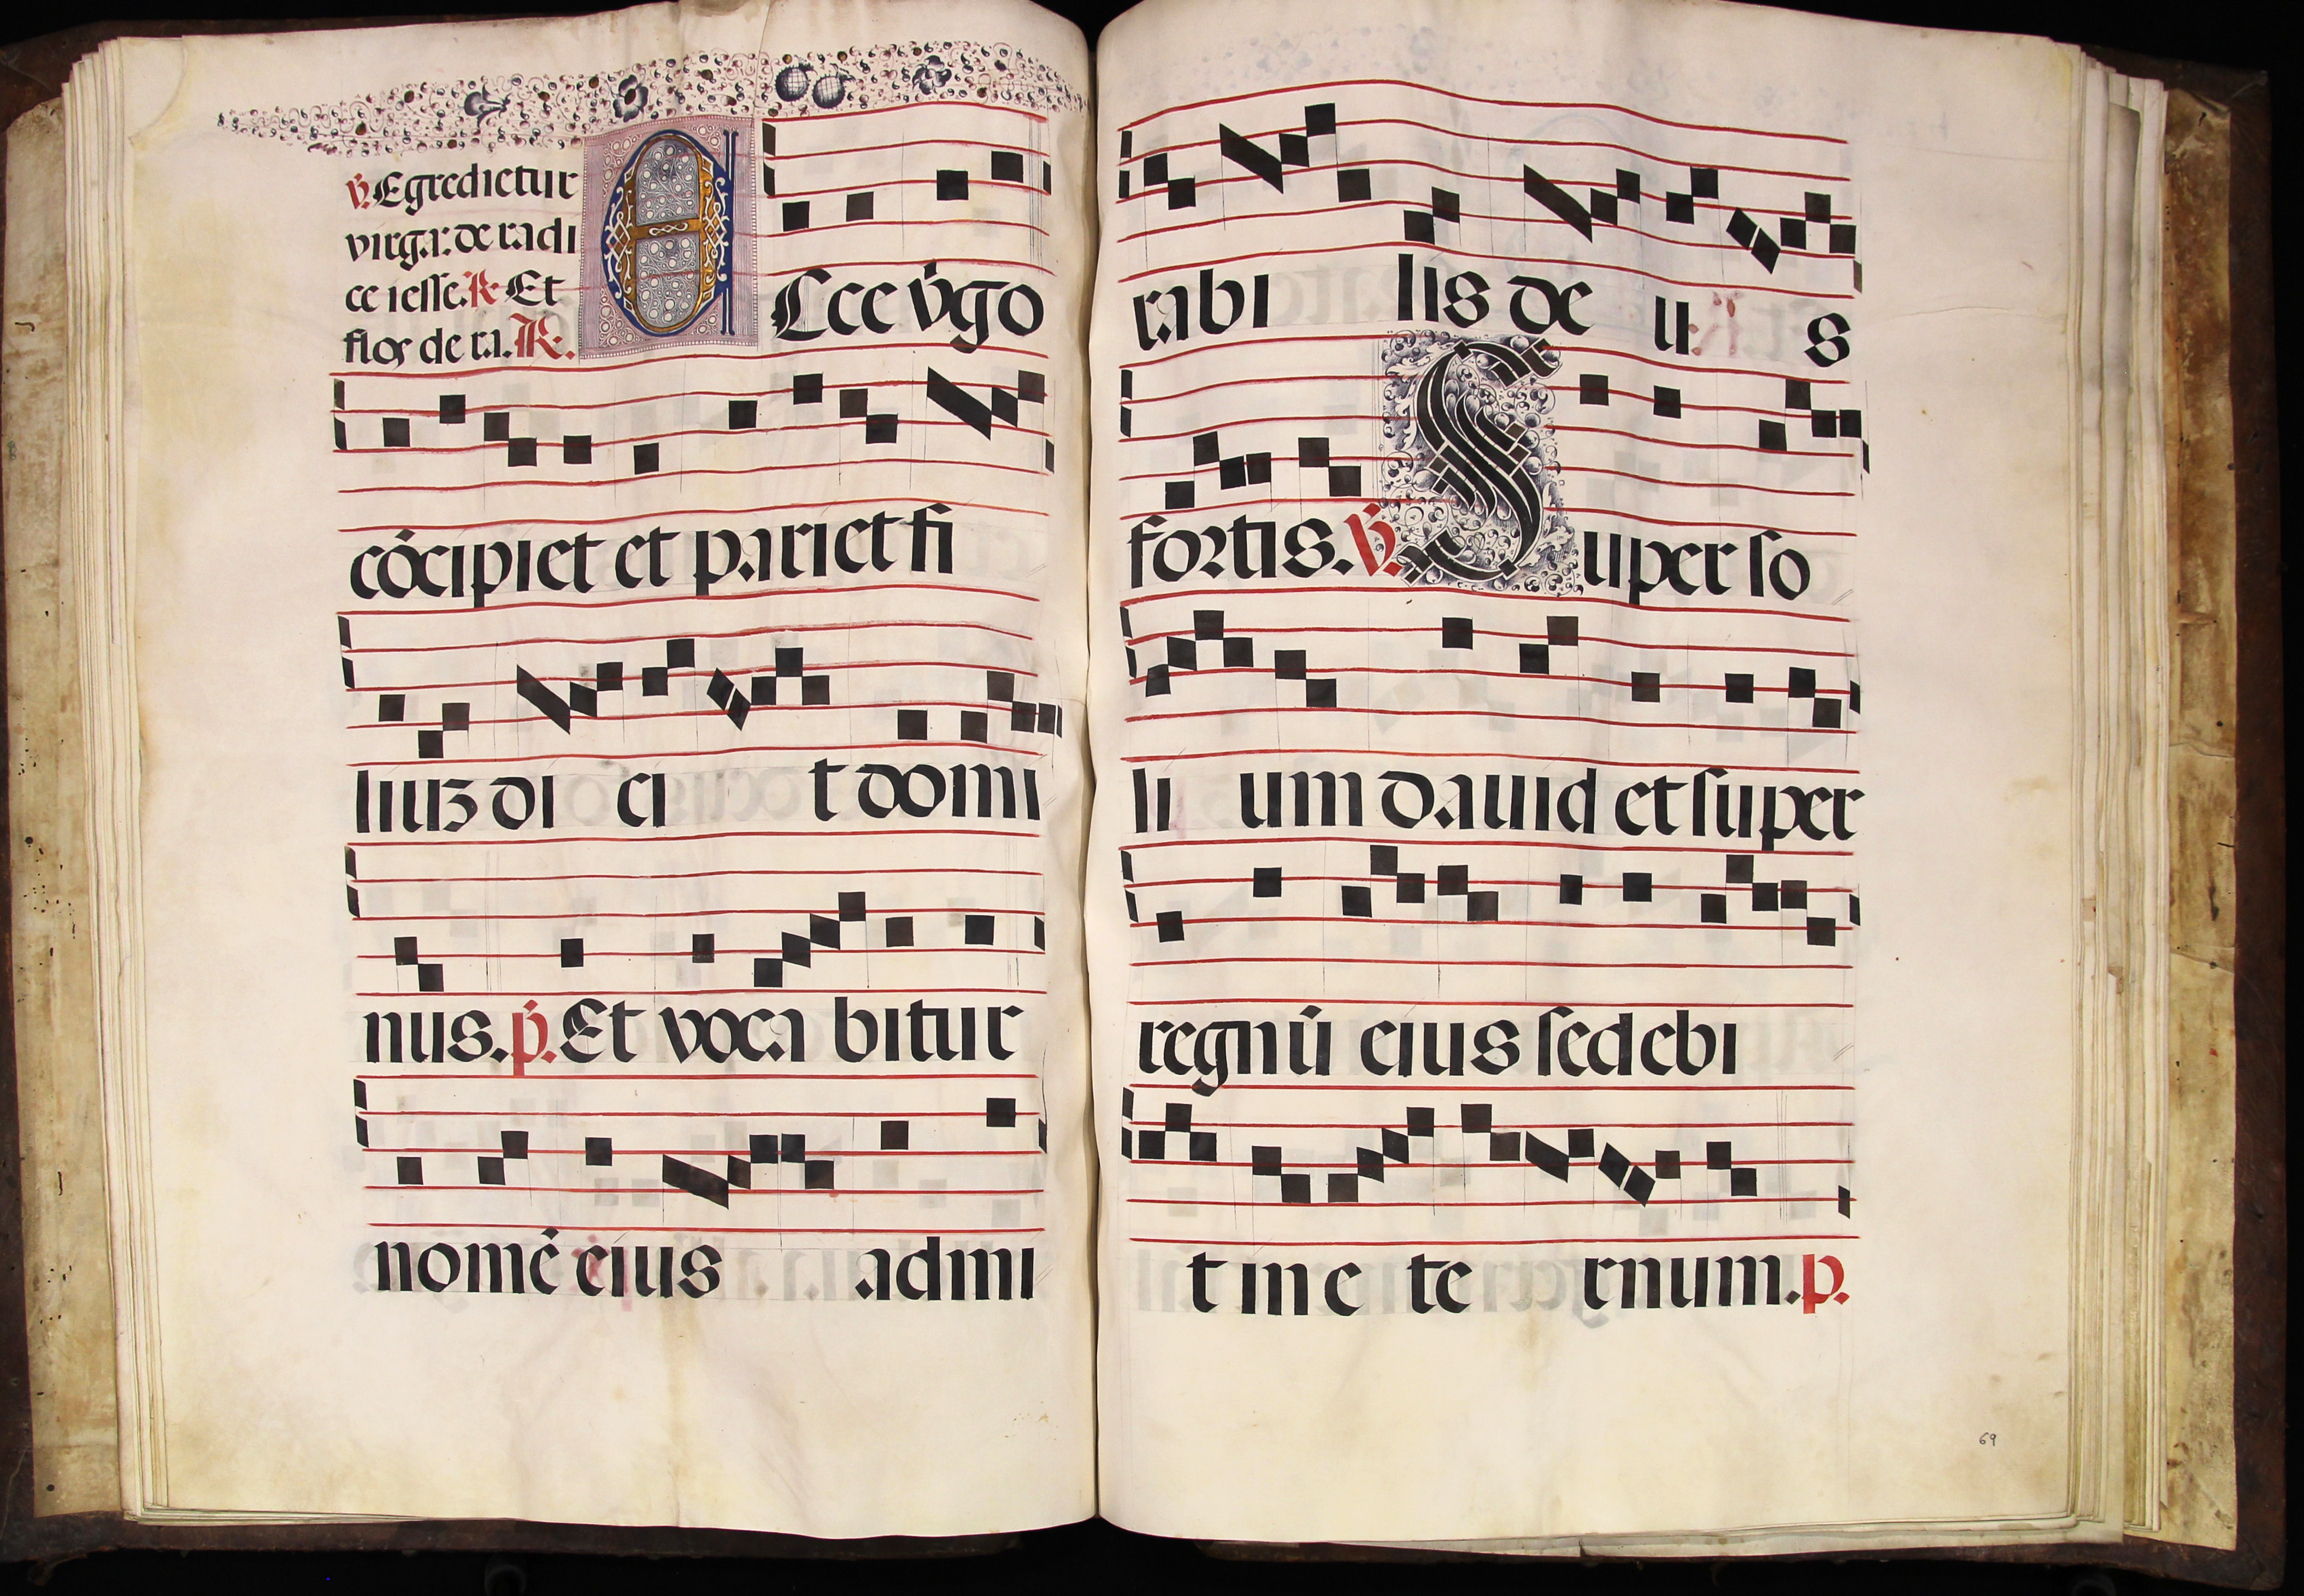 ℣. Egredietur
virga: de radi
ce iesse. ℟. Et
flos de ra. ℟.
Ecce v̄go
cōcipiet et pariet fi
liuꝫ di ci t domi
nus. p̄. Et voca bitur
nomē eius admi
rabi lis de u s
fortis. ℣. Super so
li um dauid et super
regnū eius sedebi
t in e te rnum. p.
69